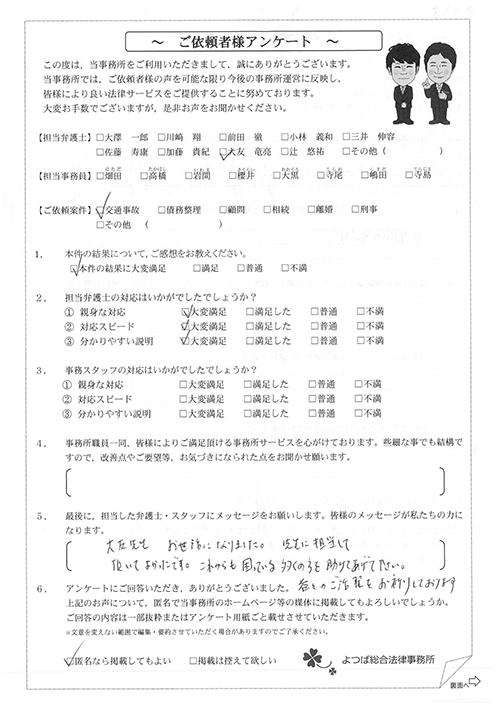 ～ ご依頼者様アンケート ～
この度は、当事務所をご利用いただきまして、誠にありがとうございます。
当事務所では、ご依頼者様の声を可能な限り今後の事務所運営に反映し、
皆様により良い法律サービスをご提供することに努めております。
大変お手数でございますが、是非お声をお聞かせください。
【担当弁護士】□大澤 一郎 □川崎 翔 □前田 徹 □小林 義和 □三井 伸容
□佐藤 寿康 □加藤 貴紀 ☑大友 竜亮 □辻 悠祐 □その他（ ）
【担当事務員】□畑田 □高橋 □岩間 □櫻井 □大黒 □寺尾 □嶋田 □寺島
【ご依頼案件】☑交通事故 □債務整理 □顧問 □相続 □離婚 □刑事
□その他（ ）
1． 本件の結果について、ご感想をお教えください。
☑本件の結果に大変満足 □満足 □普通 □不満
2． 担当弁護士の対応はいかがでしたでしょうか？
① 親身な対応 ☑大変満足 □満足した □普通 □不満
② 対応スピード ☑大変満足 □満足した □普通 □不満
③ 分かりやすい説明 ☑大変満足 □満足した □普通 □不満
3． 事務スタッフの対応はいかがでしたでしょうか？
① 親身な対応 □大変満足 □満足した □普通 □不満
② 対応スピード □大変満足 □満足した □普通 □不満
③ 分かりやすい説明 □大変満足 □満足した □普通 □不満
4． 事務所職員一同、皆様によりご満足頂ける事務所サービスを心がけております。些細な事でも結構で
すので、改善点やご要望等、お気づきになられた点をお聞かせ願います。
5． 最後に、担当した弁護士・スタッフにメッセージをお願いします。皆様のメッセージが私たちの力に
なります。
大友先生 お世話になりました。先生に担当して
頂いてよかったです。これからも困っている多くの方を助けてあげて下さい。
ご活躍をお祈りしております
6． アンケートにご回答いただき、ありがとうございました。
上記のお声について、匿名で当事務所のホームページ等の媒体に掲載してもよろしいでしょうか。
ご回答の内容は一部抜粋またはアンケート用紙ごと載せさせていただきます。
※文意を変えない範囲で編集・要約させていただく場合がありますのでご了承ください。
☑匿名なら掲載してもよい □掲載は控えて欲しい
よつば総合法律事務所
裏面へ⇨